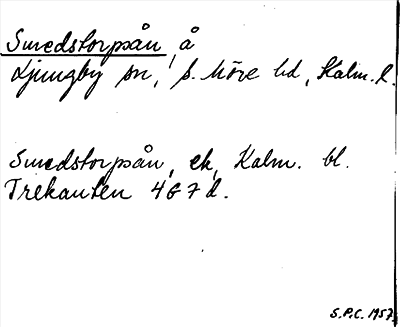 Smedstorpsån, å
Ljungby sn, s. Möre hd, Kalm. l.
Smedstorpsån, ek, Kalm. bl.
Trekanten 4G7d.
S.P.C. 1957.